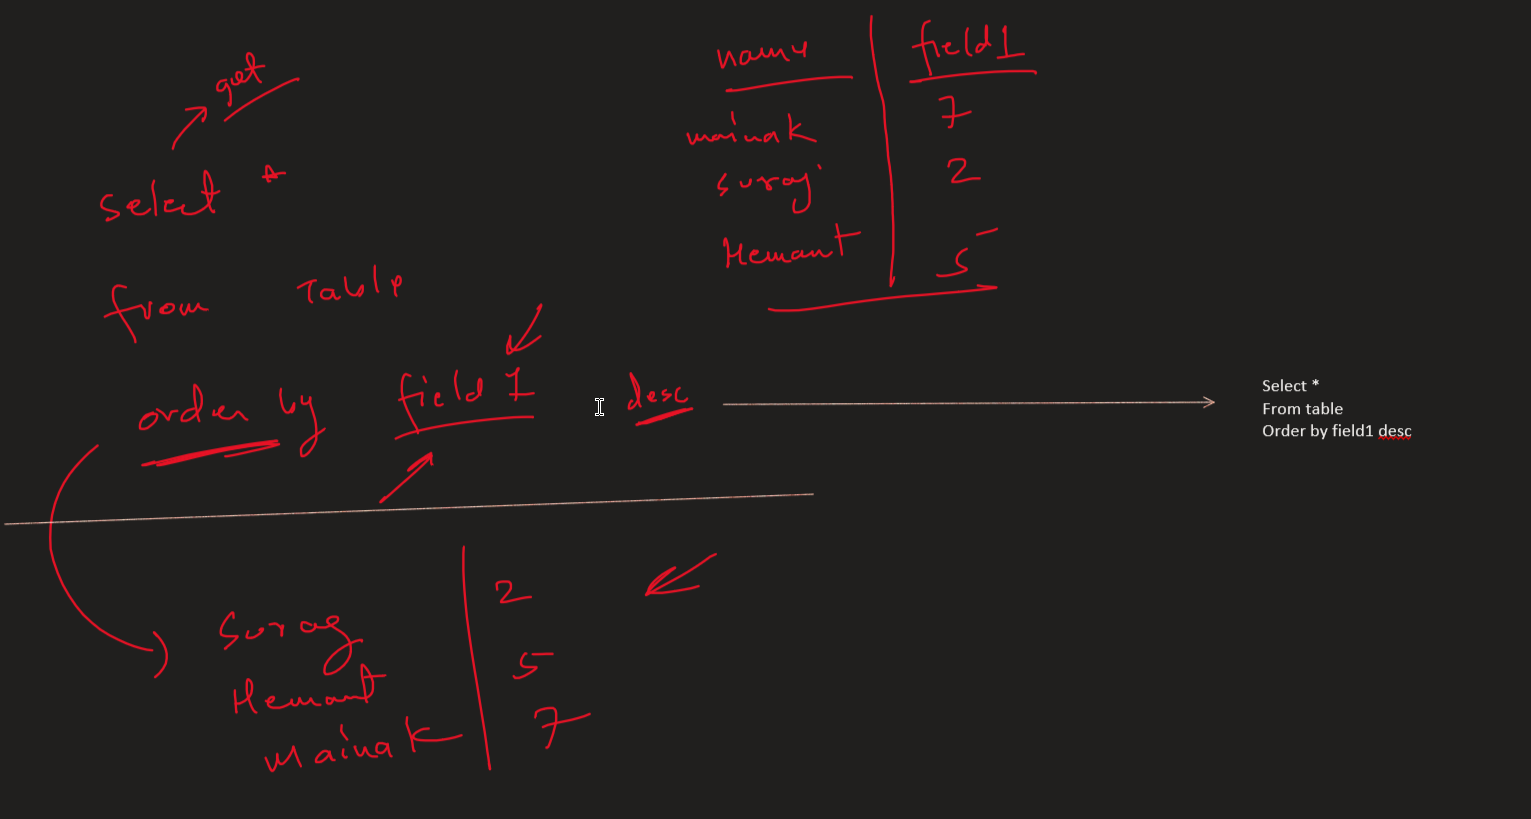 get
select *
from Table
order by field 1 desc
name field1
mainak 7
suraj 2
Hemant 5
Select *
From table
Order by field1 desc
Suraj 2
Hemant 5
Mainak 7